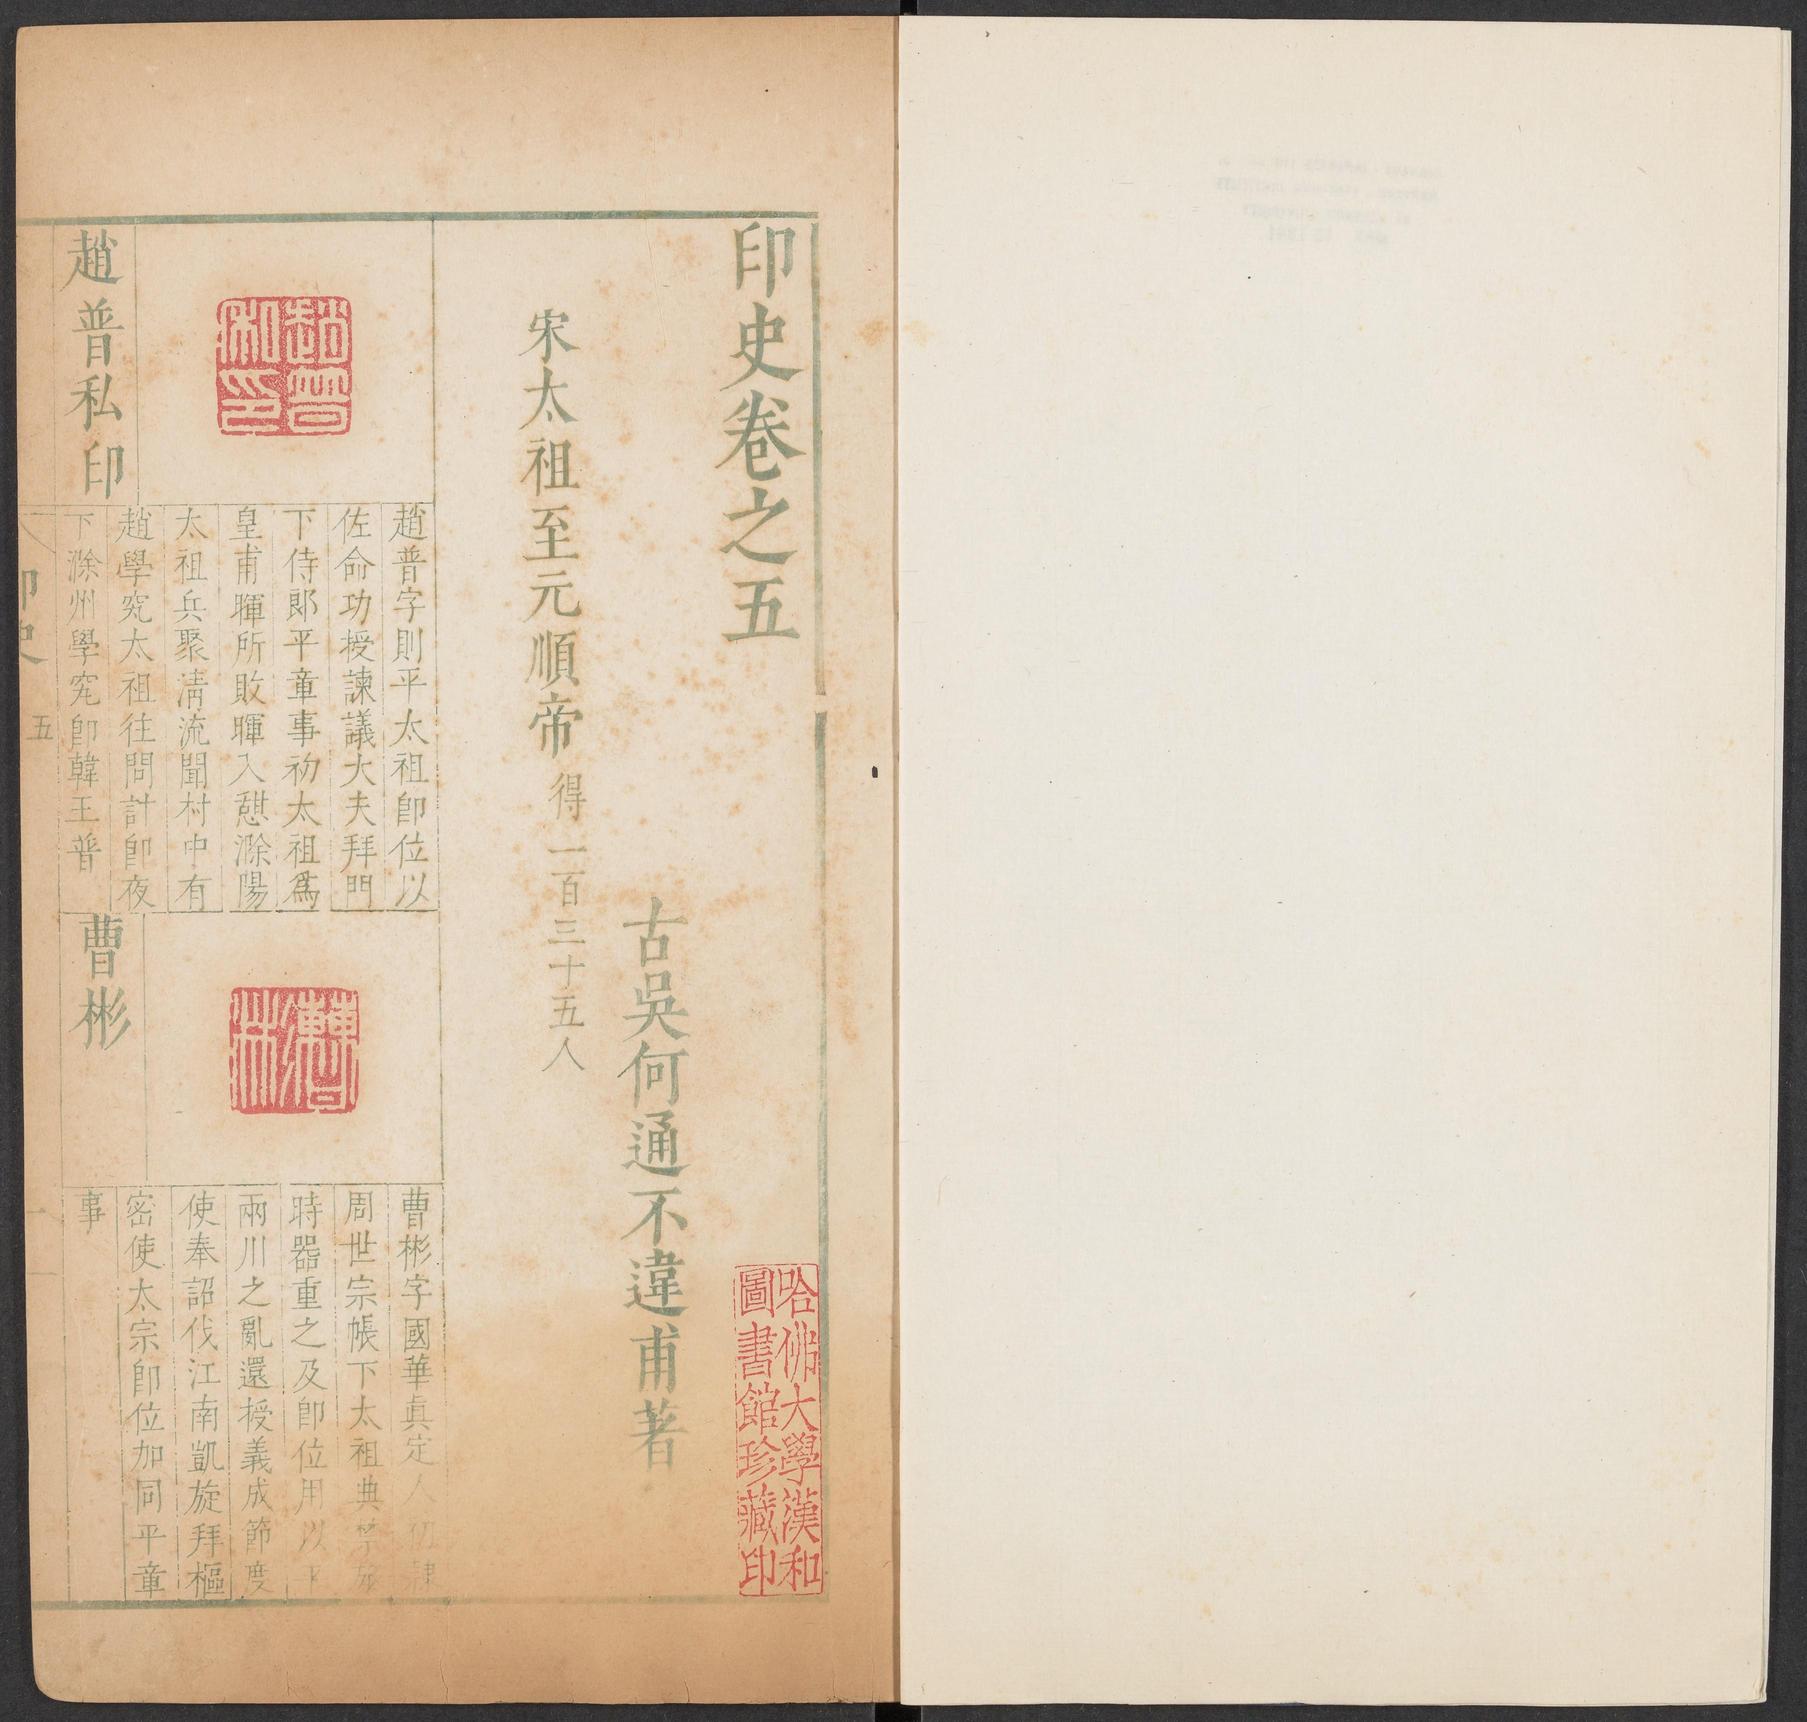 印史卷之五
古吳何通不違甫著
宋太祖至元順帝 得一百三十五人
趙普私印
趙普私印
趙普字則平太祖卽位以
佐命功授諫議大夫拜門
下侍郞平章事初太祖爲
皇甫暉所敗暉入憇滁陽
太祖兵聚淸流聞村中有
趙學究太祖往問計卽夜
下滁州學究卽韓王普
曹彬
曹彬
曹彬字國華眞定人初隸
周世宗帳下太祖典禁旅
時器重之及卽位用以平
兩川之亂還授義成節度
使奉詔伐江南凱旋拜樞
密使太宗卽位加同平章
事
印史
五
一
哈佛大學漢和
圖書館珍藏印